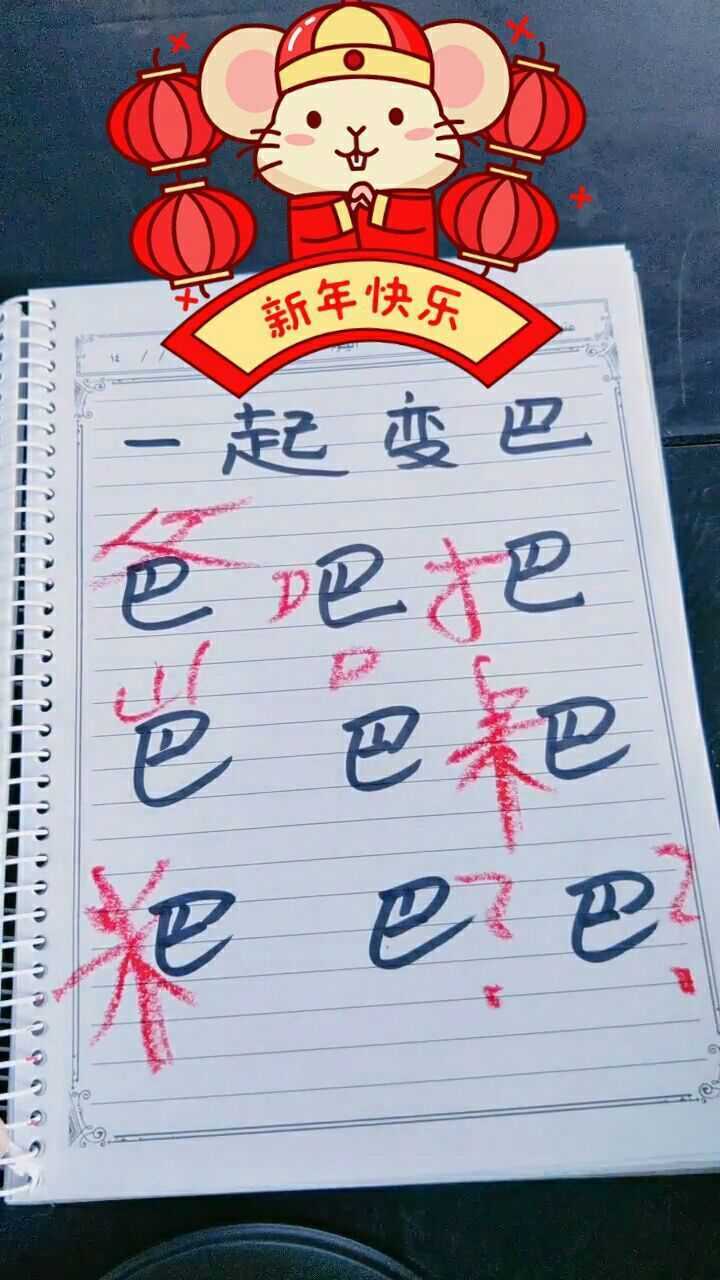 新年快乐
一起变巴
爸 吧 把
岜 邑 巴
粑 巴? 巴?